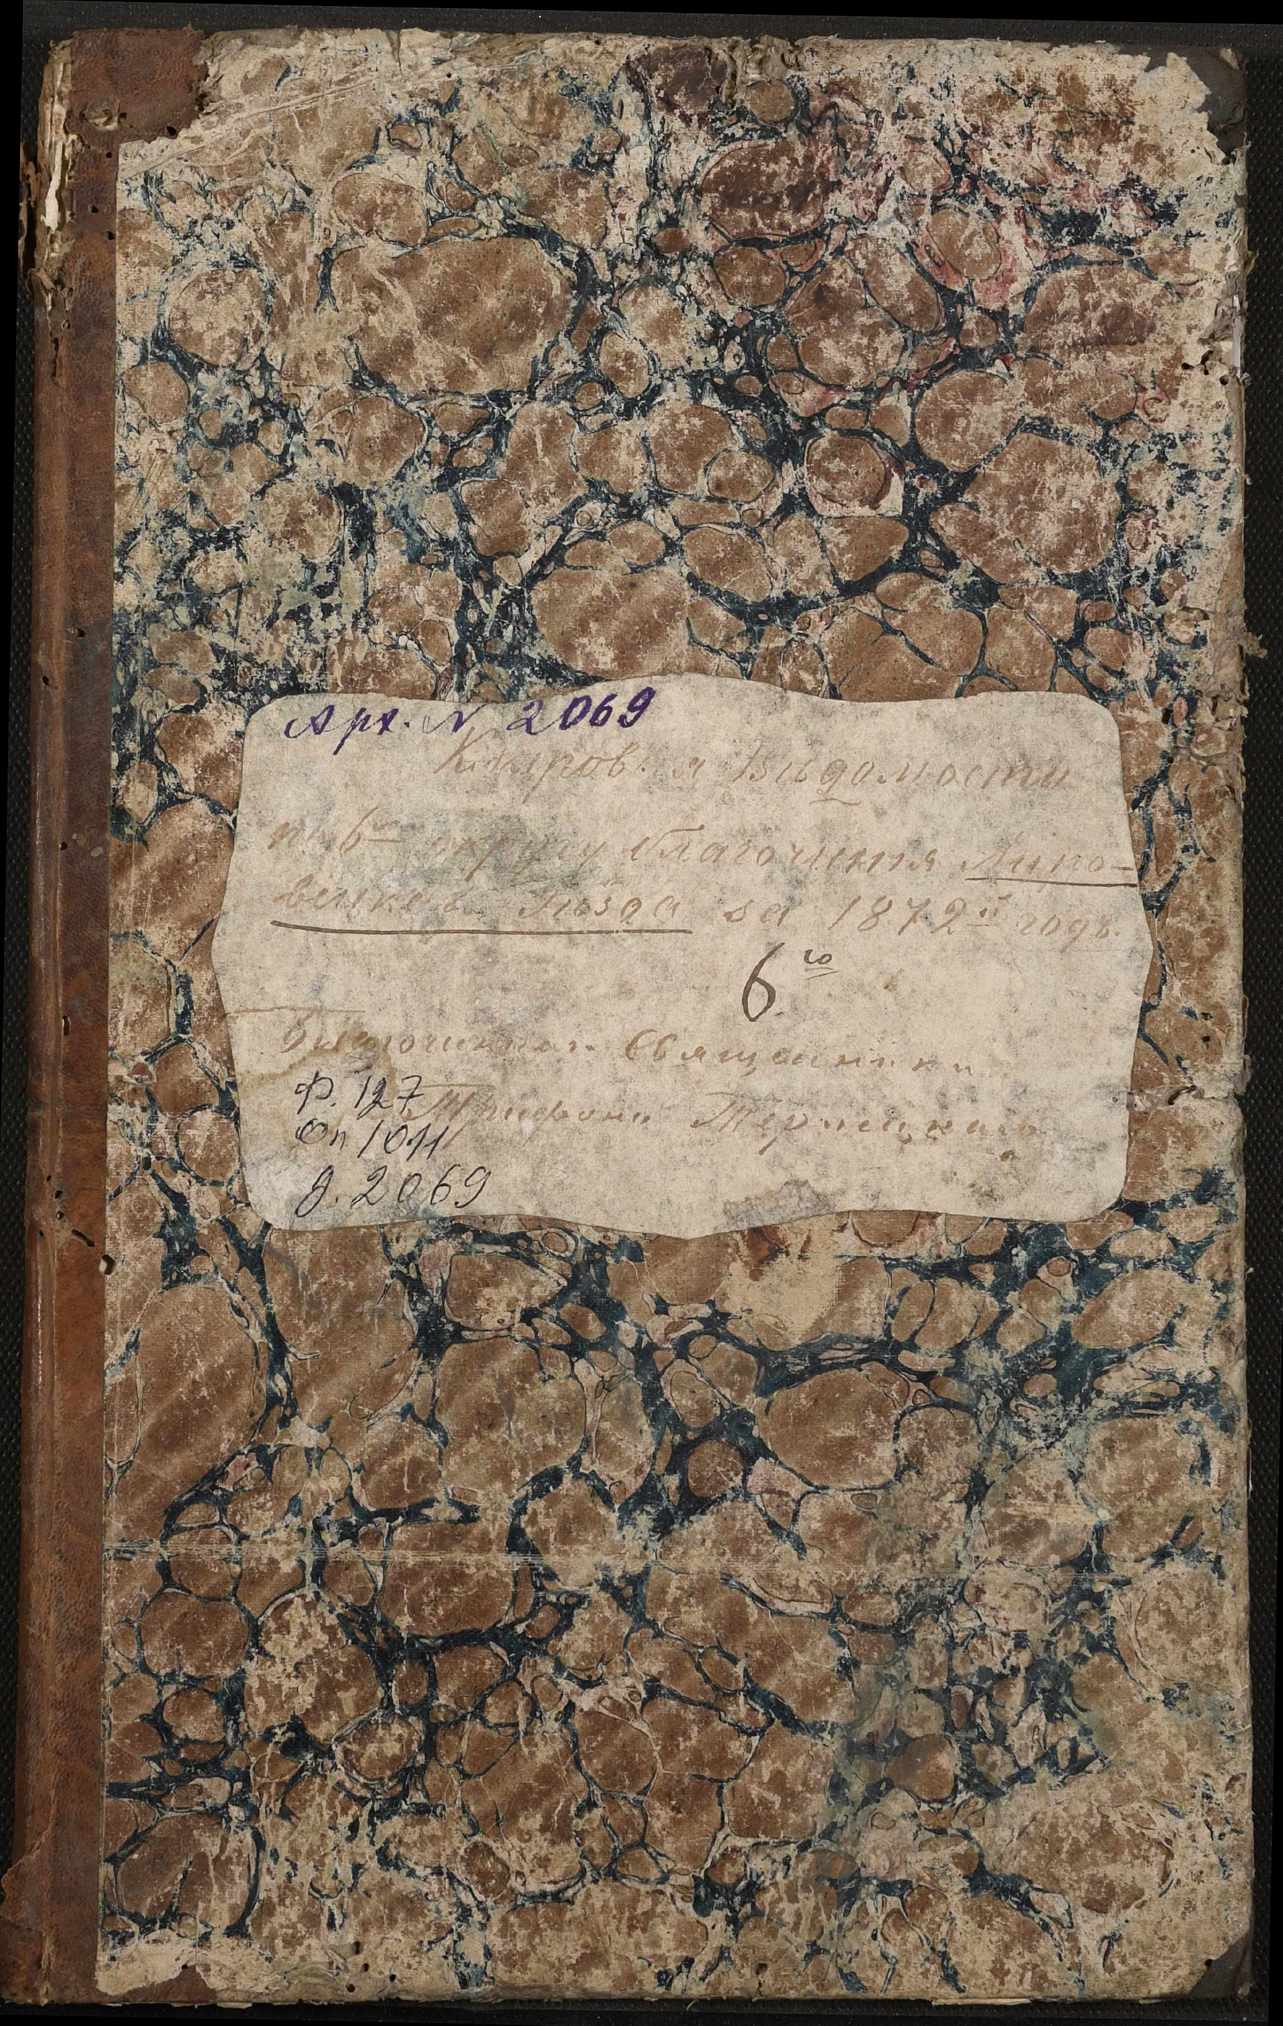 Арх. № 2069
Клиров. я Вѣдомости
по 6му округу благочинія Липо-
вецкаго уѣзда за 1872й годъ.
6го
Благочиннаго Священника
Ф. 127
Оп 1011
Д. 2069